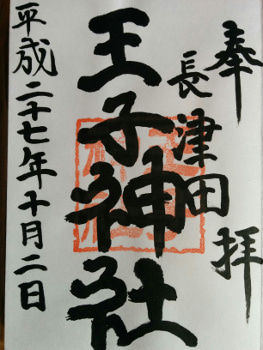 奉拝
長津田
王子神社
平成二十七年十月二日